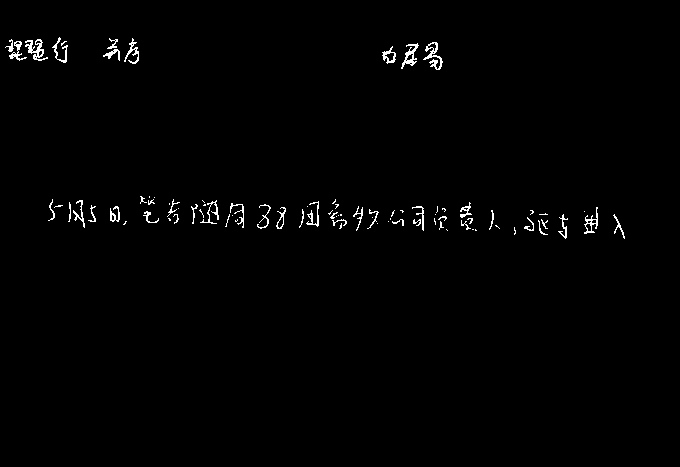 琵琶行 并序 白居易
5月5日,笔者随同38团畜牧公司负责人,驱车进入